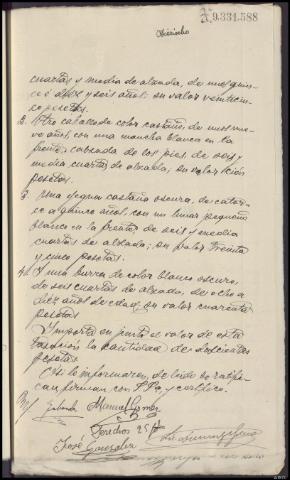 9.331.588
cuartas y media de alzada, de unos quin-
ce á diez y seis años; su valor veinticin-
co pesetas.
2. Otro caballo color castaño, de unos nue-
ve años, con una mancha blanca en la
frente, calzada de los pies de seis y
media cuartas de alzada, su valor cien
pesetas.
3. Una yegua castaño oscura, de cator-
ce a quince años, con un lunar pequeño
blanco en la frente de seis y media
cuartas de alzada; su valor treinta
y cinco pesetas.
4. Y una burra de color blanco oscuro,
de seis cuartas de alzada, de ocho a
diez años de edad; su valor cuarenta
pesetas
Importa en junto el valor de esta
tasación la cantidad de doscientas
pesetas
Así lo informaron, de leído se ratifi-
can, firman con S. Sª, y certifico.
Manuel Gomez
Derechos 25
José Gonzalez